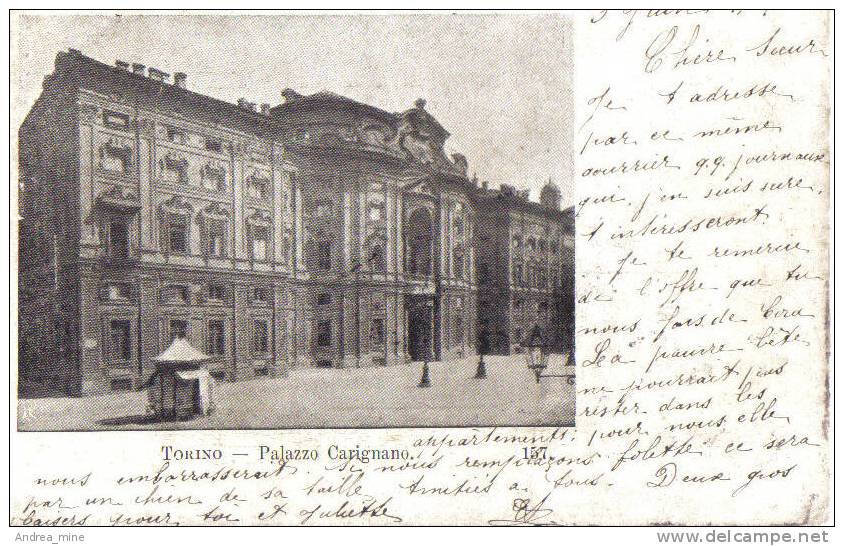 Chère Sœur
Je t adresse
par ce même
courrier q.q. journaux
qui, j'en suis sure,
t intéresseront.
Je te remercie
de l'offre que tu
nous fais de Cora
La pauvre bête
ne pourrait pas
rester dans les
appartements, pour nous, elle
TORINO — Palazzo Carignano. 157
nous embarrasserait. Si nous remplaçons folette ce sera
par un chien de sa taille Amitiés a tous. Deux gros
baisers pour toi et Juliette
Andrea_mine
www.delcampe.net